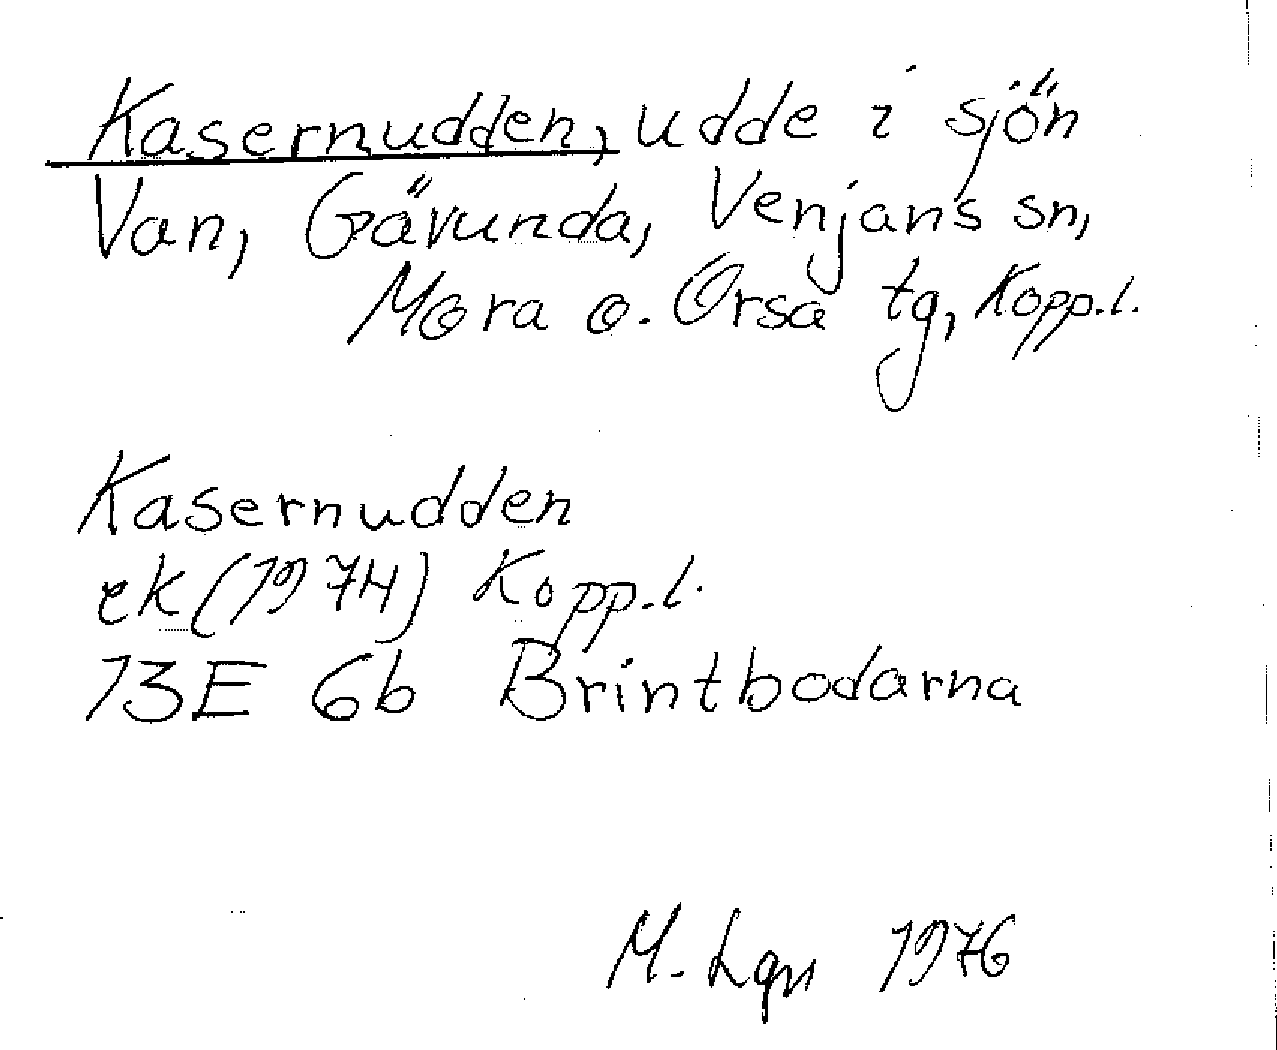 Kasernudden, udde i sjön
Van, Gävunda, Venjans sn,
Mora o. Orsa tg, Kopp.l.
Kasernudden
ek (1974) Kopp.l.
13E 6b Brintbodarna
M. Lgn 1976